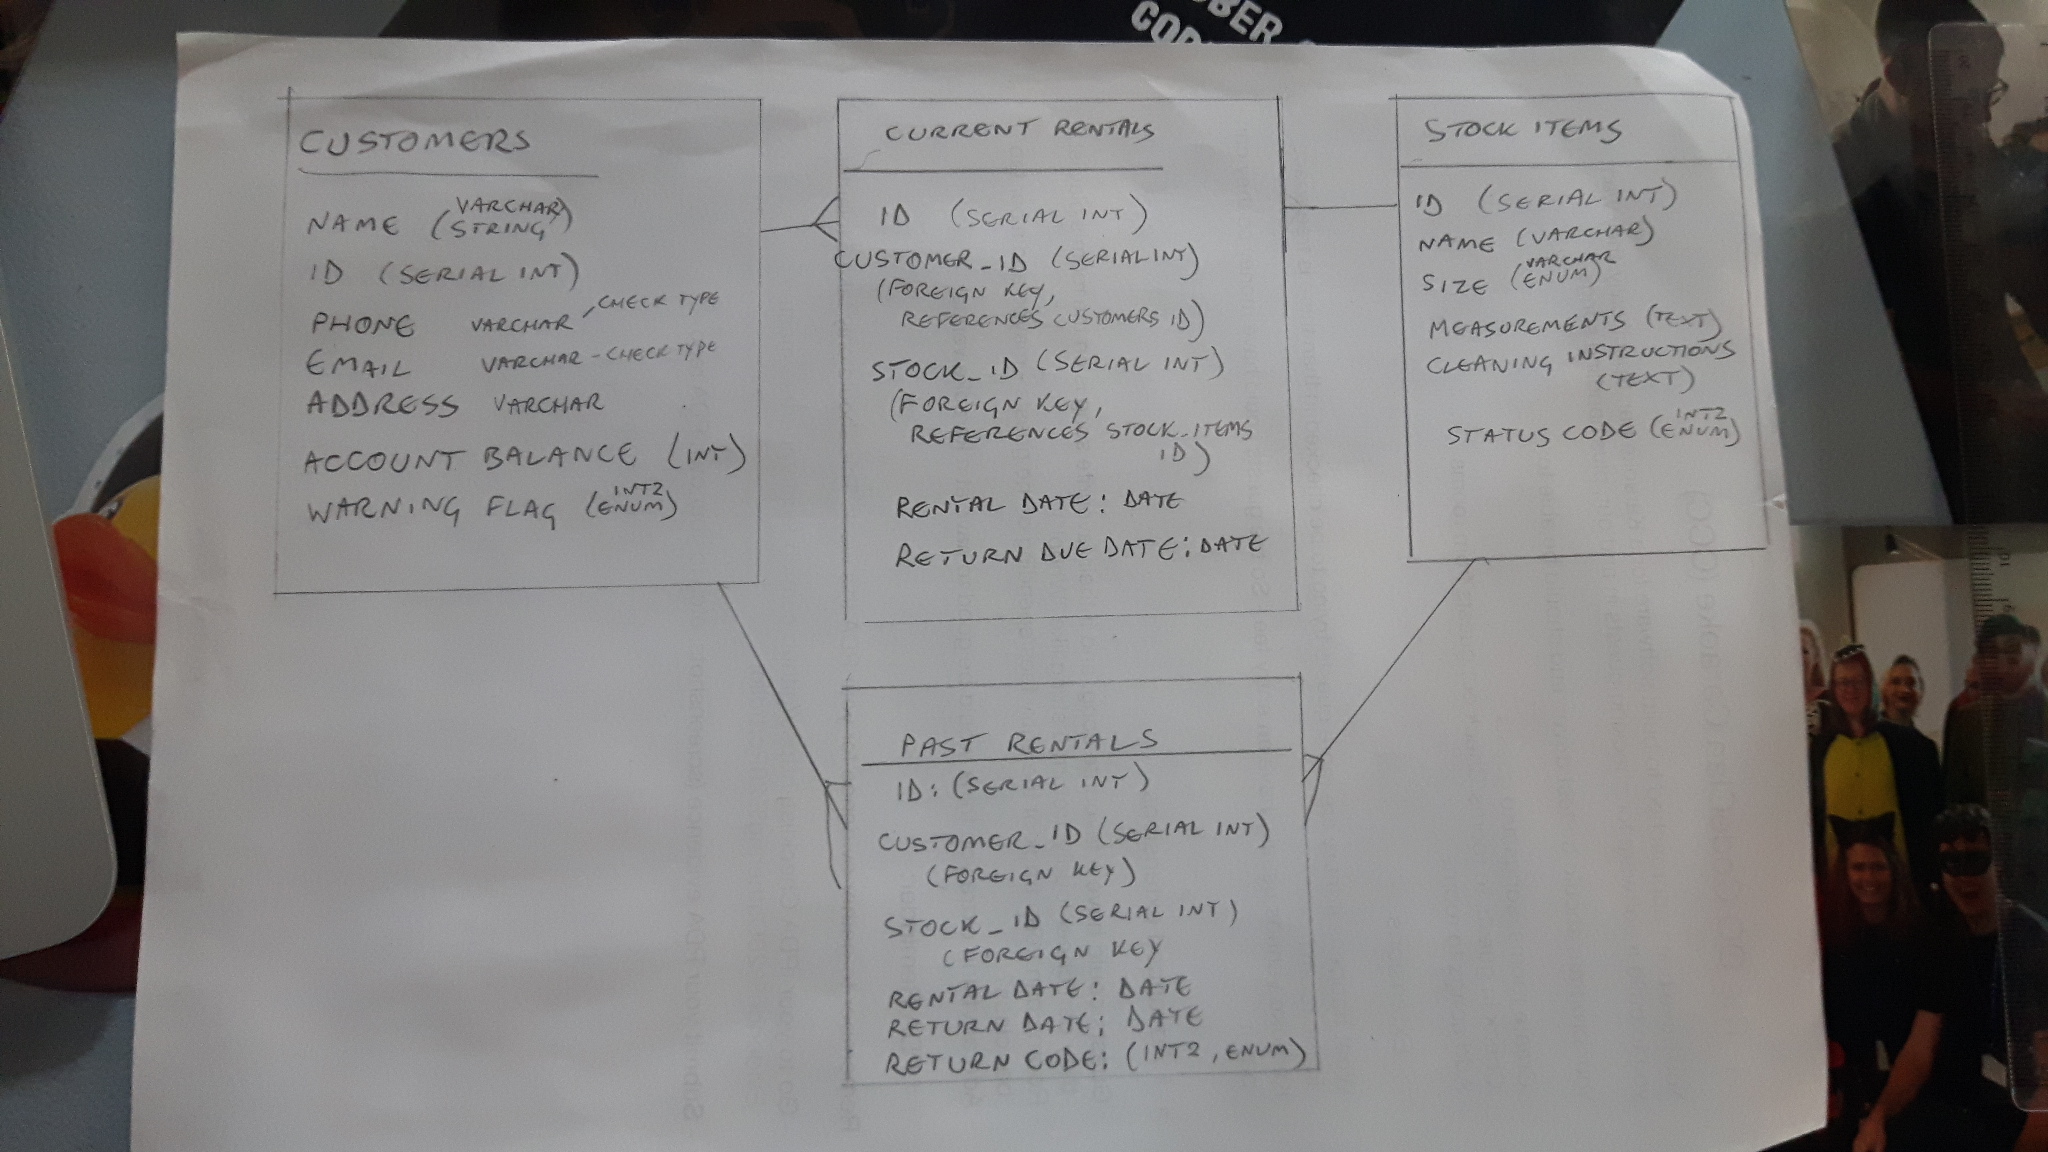 CUSTOMERS
NAME (VARCHAR
STRING)
ID (SERIAL INT)
PHONE VARCHAR - CHECK TYPE
EMAIL VARCHAR - CHECK TYPE
ADDRESS VARCHAR
ACCOUNT BALANCE (INT)
WARNING FLAG (INT2
ENUM)
CURRENT RENTALS
ID (SERIAL INT)
CUSTOMER_ID (SERIAL INT)
(FOREIGN KEY,
REFERENCES CUSTOMERS ID)
STOCK_ID (SERIAL INT)
(FOREIGN KEY,
REFERENCES STOCK_ITEMS
ID)
RENTAL DATE: DATE
RETURN DUE DATE: DATE
STOCK ITEMS
ID (SERIAL INT)
NAME (VARCHAR)
SIZE (VARCHAR
ENUM)
MEASUREMENTS (TEXT)
CLEANING INSTRUCTIONS
(TEXT)
STATUS CODE (INT2
ENUM)
PAST RENTALS
ID: (SERIAL INT)
CUSTOMER_ID (SERIAL INT)
(FOREIGN KEY)
STOCK_ID (SERIAL INT)
(FOREIGN KEY
RENTAL DATE: DATE
RETURN DATE: DATE
RETURN CODE: (INT2, ENUM)